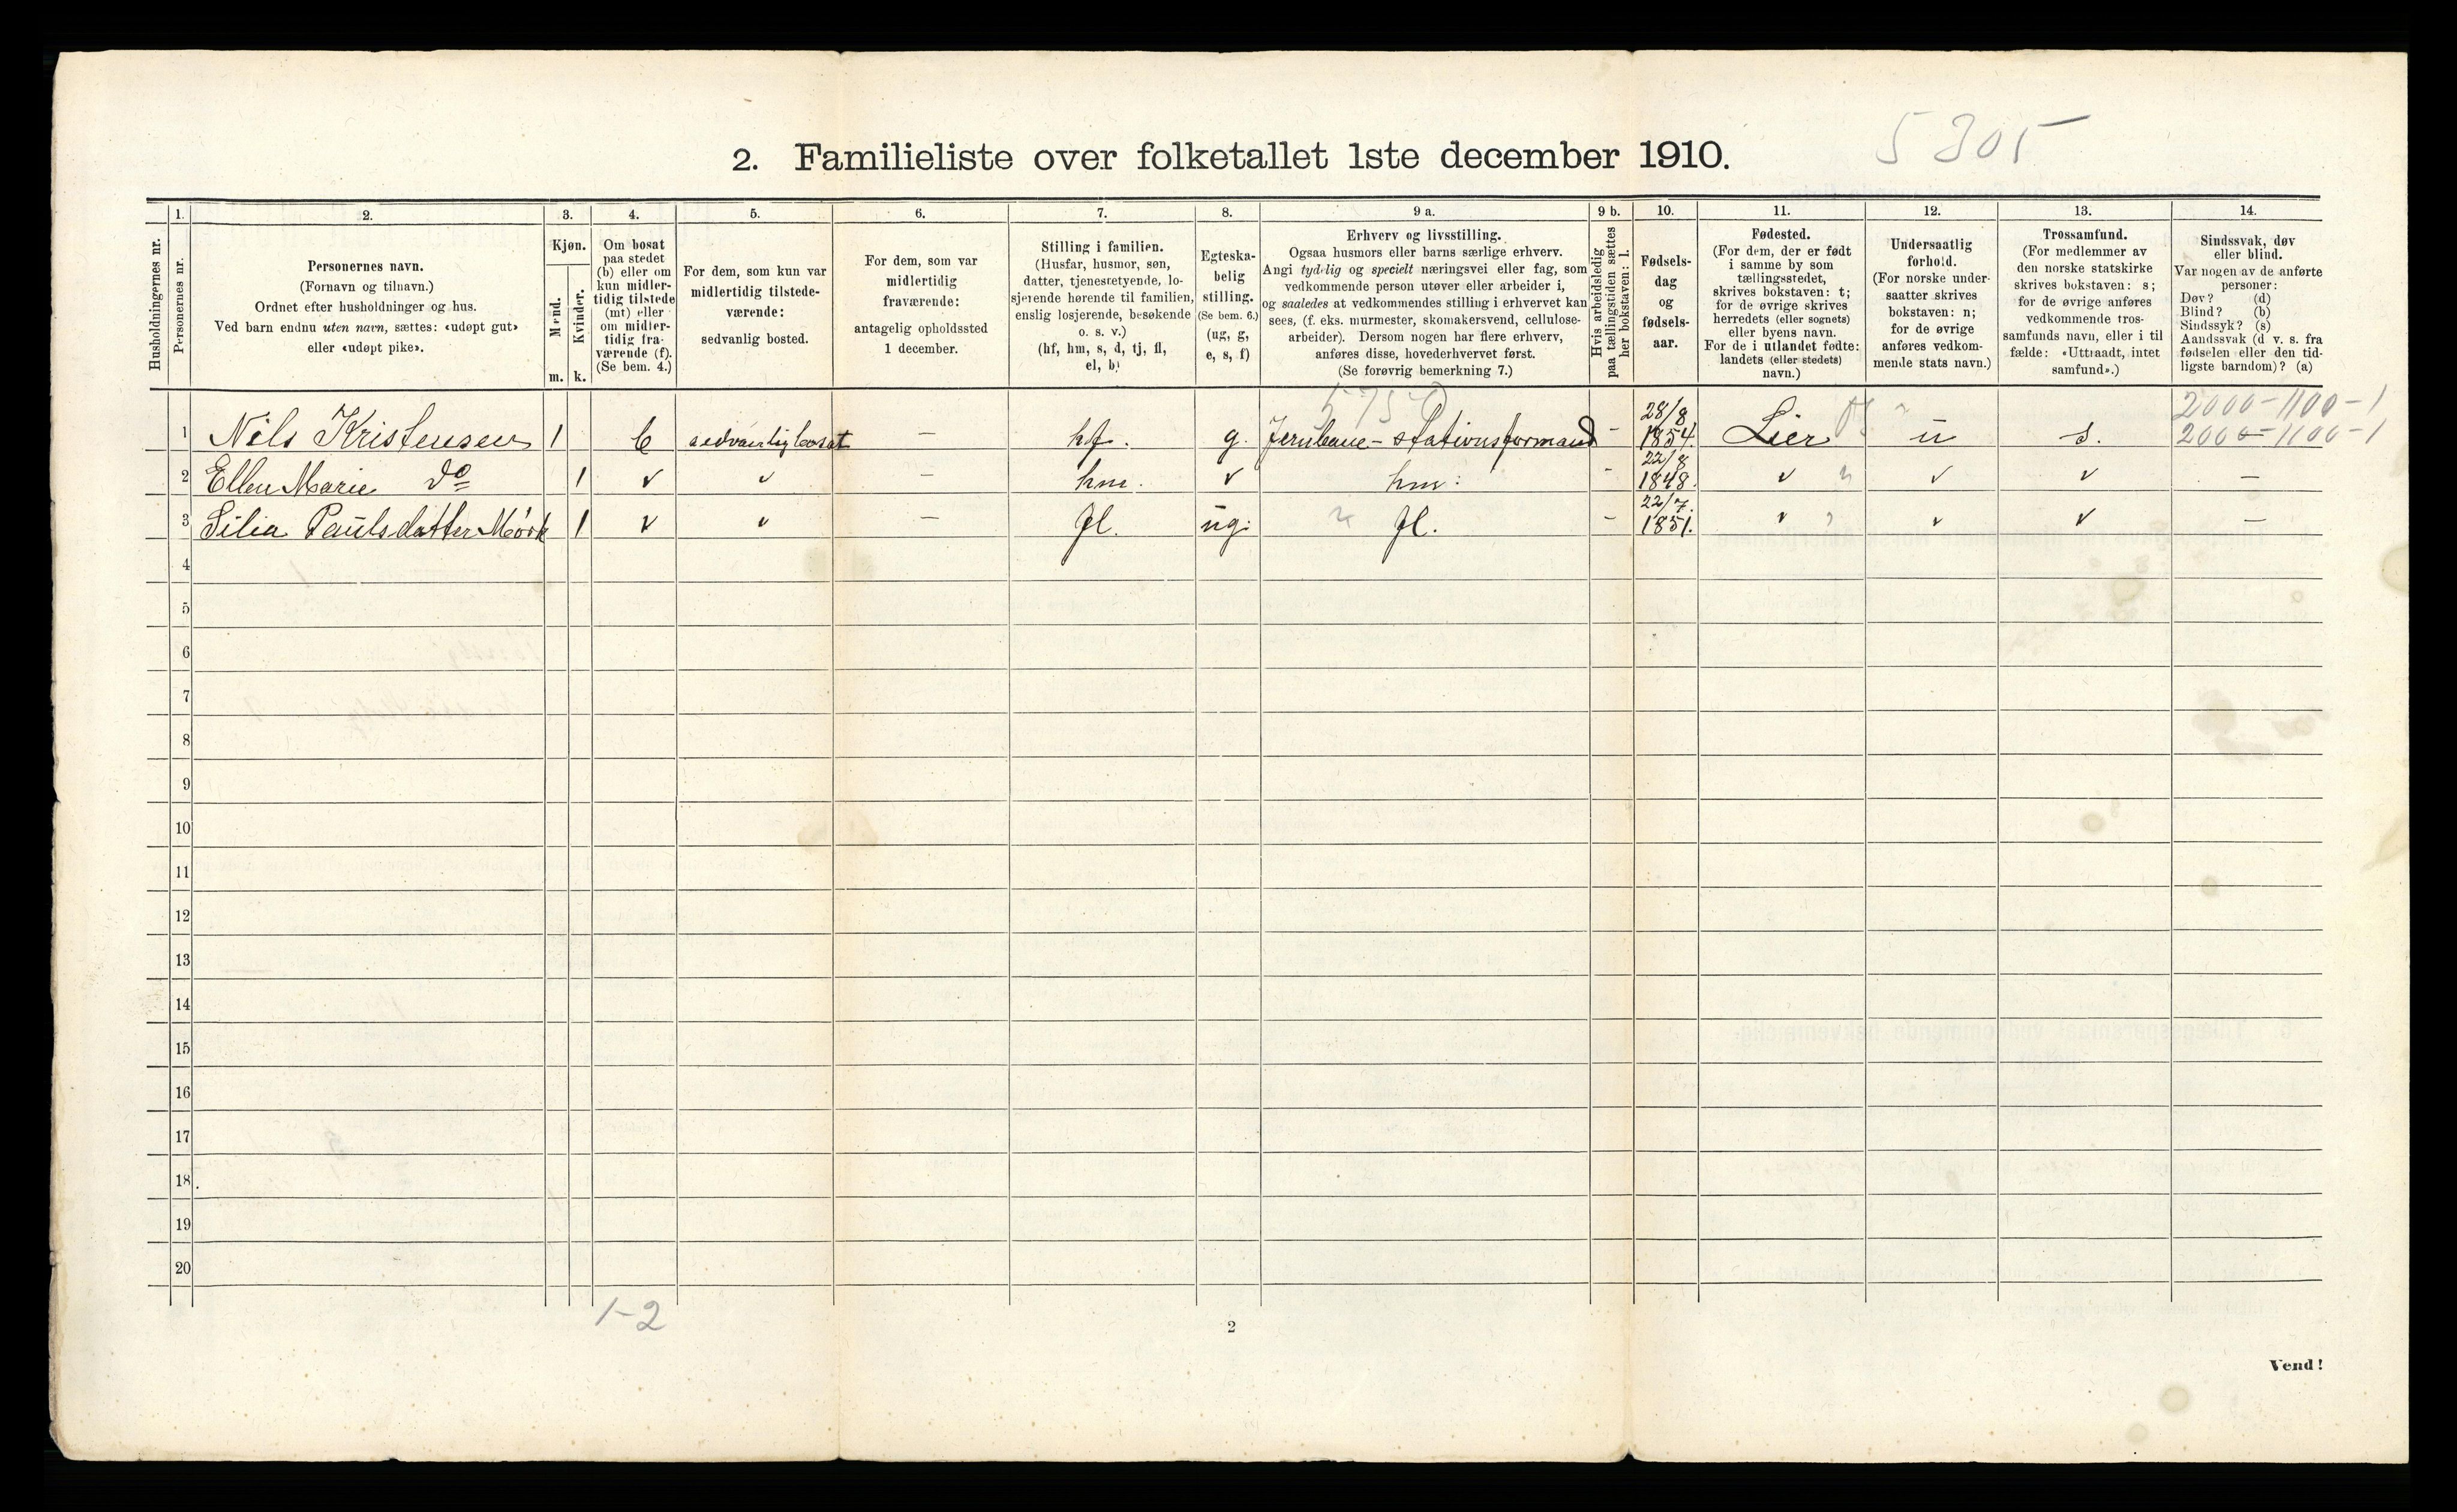 5305
2. Familieliste over folketallet 1ste december 1910.
Husholdningernes nr.
1. 2. 3. 4. 5. 6. 7. 8. 9 a. 9 b. 10. 11. 12. 13. 14.
Personernes nr.
Personernes navn.
(Fornavn og tilnavn.)
Ordnet efter husholdninger og hus.
Ved barn endnu uten navn, sættes: «udøpt gut»
eller «udøpt pike».
Kjøn.
Mænd.
Kvinder.
m. k.
Om bosat
paa stedet
(b) eller om
kun midler-
tidig tilstede
(mt) eller
om midler-
tidig fra-
værende (f).
(Se bem. 4.)
For dem, som kun var
midlertidig tilstede-
værende:
sedvanlig bosted.
For dem, som var
midlertidig
fraværende:
antagelig opholdssted
1 december.
Stilling i familien.
(Husfar, husmor, søn,
datter, tjenestetyende, lo-
sjerende hørende til familien,
enslig losjerende, besøkende
o. s. v.)
(hf, hm, s, d, tj, fl,
el, b)
Egteska-
belig
stilling.
(Se bem. 6.)
(ug, g,
e, s, f)
Erhverv og livsstilling.
Ogsaa husmors eller barns særlige erhverv.
Angi tydelig og specielt næringsvei eller fag, som
vedkommende person utøver eller arbeider i,
og saaledes at vedkommendes stilling i erhvervet kan
sees, (f. eks. murmester, skomakersvend, cellulose-
arbeider). Dersom nogen har flere erhverv,
anføres disse, hovederhvervet først.
(Se forøvrig bemerkning 7.)
Hvis arbeidsledig
paa tællingstiden sættes
her bokstaven: l.
Fødsels-
dag
og
fødsels-
aar.
Fødested.
(For dem, der er født
i samme by som
tællingsstedet,
skrives bokstaven: t;
for de øvrige skrives
herredets (eller sognets)
eller byens navn.
For de i utlandet fødte:
landets (eller stedets)
navn.)
Undersaatlig
forhold.
(For norske under-
saatter skrives
bokstaven: n;
for de øvrige
anføres vedkom-
mende stats navn.)
Trossamfund.
(For medlemmer av
den norske statskirke
skrives bokstaven: s;
for de øvrige anføres
vedkommende tros-
samfunds navn, eller i til
fælde: «Uttraadt, intet
samfund».)
Sindssvak, døv
eller blind.
Var nogen av de anførte
personer:
Døv? (d)
Blind? (b)
Sindssyk? (s)
Aandssvak (d v. s. fra
fødselen eller den tid-
ligste barndom)? (a)
2000-1100-1
1 Nils Kristensen 1 b sedvanlig bosat – hf. g. Jernbane-stationsformand – 28/8 1854. Lier n s. 2000-1100-1
2 Ellen Marie do 1 v v – hm. v hm: – 22/8 1848. v v v –
3 Silia Paulsdatter Mørk 1 v v – fl. ug: fl. – 22/7. 1851. v v v –
4
5
6
7
8
9
10
11
12
13
14
15
16
17
18
19
20
1-2
2
Vend!